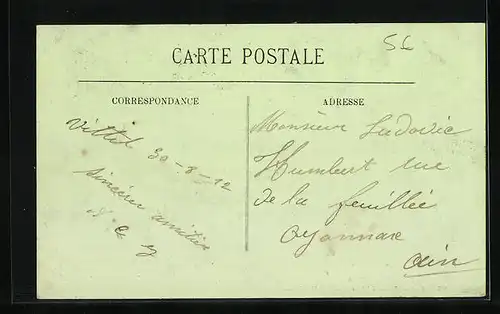 56
CARTE POSTALE
CORRESPONDANCE
ADRESSE
Vittel 30-8-12
Sincère amitiés
Monsieur Ludovic
Humbert rue
de la feuillée
Oyonnax
Ain